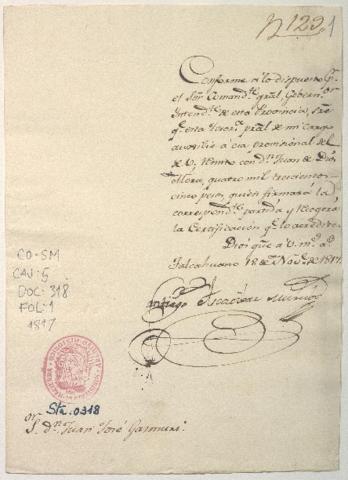 N 123.
1
Conforme a lo dispuesto
el Sōr Comandte gral, Gobernor
Intendte de esta Provincia,
qe esta Tesorā pral de mi cargo
auxilie a esa provisional del
de V, remito con dn Juan de Dios
Mora, quatro mil trecientos
cinco pesos, quien firmará la
correspondte partida y recogerá
la Certificación qe lo acredite.
Dios gue a V. ms as
Talcahuano 18 de Nove de 1817.
Santiago Ascacíbar Murube
CO-SM
CAJ: 5
DOC: 318
FOL: 1
1817
Sta. 0318
or
S. dn Juan José